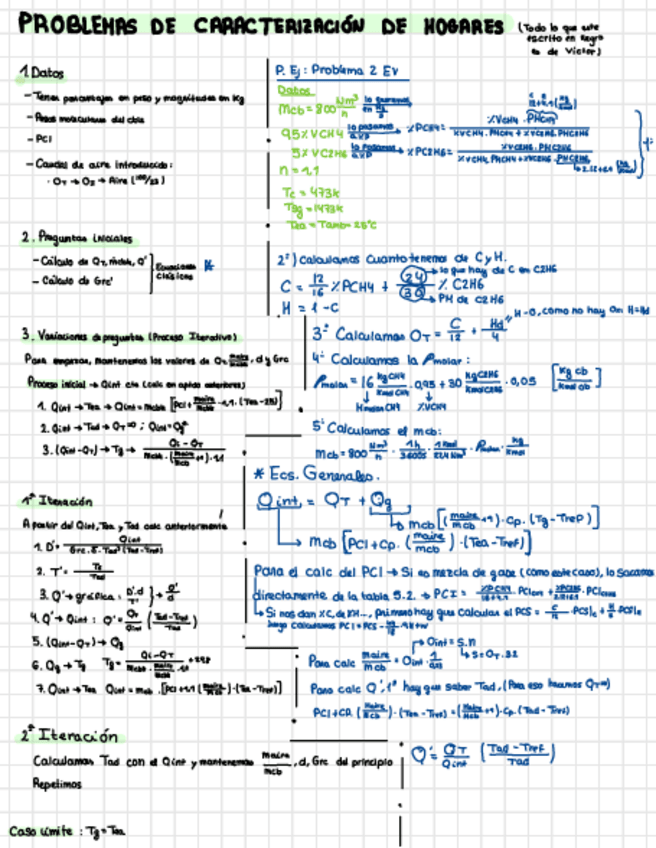 PROBLEMAS DE CARACTERIZACIÓN DE HOGARES (Todo lo que este
escrito en negro
es de Victor)
1. Datos
- Tener porcentajes en peso y magnitudes en Kg
- Pesos moleculares del cble
- PCI
- Caudal de aire introducido:
· OT → O2 → Aire (100/23)
2. Preguntas iniciales
- Cálculo de QT, mcble, Q'
- Cálculo de Grc'
Ecuaciones clásicas *
3. Variaciones de preguntas (Proceso Iterativo)
Para empezar, mantenemos los valores de QT, maire/mcb, d y Grc
Proceso inicial → Qint cte (calc en aptdos anteriores)
1. Qint → Tea → Qint = mcble [PCI + maire/mcb · 1,1 · (Tea - 25)]
2. Qint → Tad → QT=0 ; Qint = Qg
3. (Qint - QT) → Tg →
1ª Iteración
A partir del Qint, Tea y Tad calc anteriormente
1. D' = Qint
2. T' = To/Tad
3. Q' → gráfica : D'.d
4. Q' → Qint : Q' = QT/Qint (Tad - Tref / Tad)
5. (Qint - QT) → Qg
6. Qg → Tg Tg =
7. Qint → Tea Qint = mcb · [PCI + 1,1 (maire/mcb) · (Tea - Tref)]
2ª Iteración
Calculamos Tad con el Qint y mantenemos maire/mcb, d, Grc del principio
Repetimos
Caso límite : Tg = Tea
P. Ej : Problema 2 EV
Datos
mcb = 800 Nm³/h lo queremos en Kg/s
95% VCH4 lo pasamos a %P %PCH4 = %VCH4 · PMCH4 / %VCH4 · PMCH4 + %VC2H6 · PMC2H6
5% VC2H6 lo pasamos a %P %PC2H6 = %VC2H6 · PMC2H6 / %VCH4 · PMCH4 + %VC2H6 · PMC2H6
n = 1,1
Tc = 473K
Tg = 1473K
Tea = Tamb = 25°C
2º) Calculamos cuanto tenemos de C y H.
C = 12/16 %PCH4 + 24/30 % C2H6
lo que hay de C en C2H6
PM de C2H6
H = 1 - C
3º Calculamos OT = C/12 + Hd/4
H - 0, como no hay O H=Hd
4º Calculamos la ρmolar :
ρmolar = 16 kgCH4/KmolCH4 · 0,95 + 30 kgC2H6/KmolC2H6 · 0,05 [Kg cb/Kmol cb]
%VCH4
5º Calculamos el mcb:
mcb = 800 Nm³/h · 1h/3600s · 1 Kmol/22,4 Nm³ · ρmolar · kg/Kmol
* Ecs. Generales.
Qint = QT + Qg
mcb [(maire/mcb + 1) · Cp · (Tg - Tref)]
mcb [PCI + Cp · (maire/mcb) · (Tea - Tref)]
Para el calc del PCI → Si es mezcla de gases (como este caso), lo sacamos
directamente de la tabla 5.2. → PCI =
Si nos dan %C, de %H..., primero hay que calcular el PCS =
Luego calculamos PCI = PCS -
Para calc maire/mcb = Oint · 1/0,21
Oint = S.n
S = OT . 32
Para calc Q', 1º hay que saber Tad, (Para eso hacemos QT=0)
PCI + Cp. (maire/mcb) · (Tea - Tref) = (maire/mcb + 1) · Cp · (Tad - Tref)
Q' = QT/Qint (Tad - Tref / Tad)